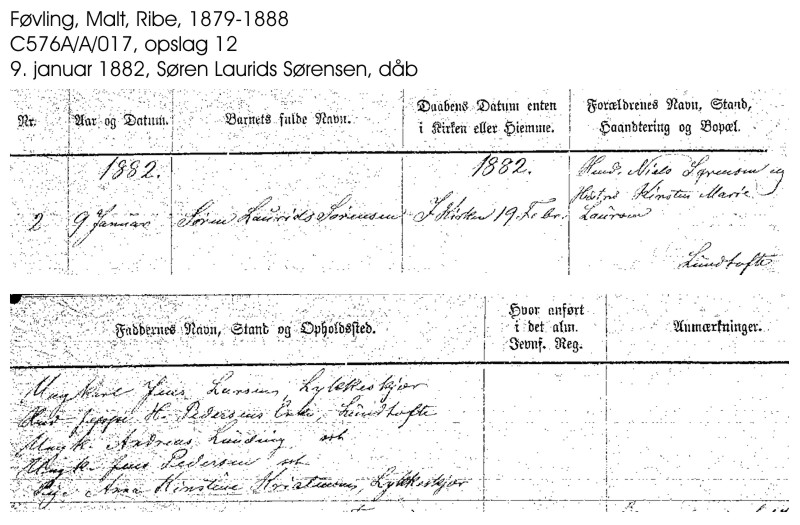 Føvling, Malt, Ribe, 1879-1888
C576A/A/017, opslag 12
9. januar 1882, Søren Laurids Sørensen, dåb
Nr. Aar og Datum. Barnets fulde Navn. Daabens Datum enten i Kirken eller Hiemme. Forældrenes Navn, Stand, Haandtering og Bopæl.
1882. 1882. Husd. Niels Sørensen og
Hustru Kirsten Marie
2 9 Januar Søren Laurids Sørensen I Kirken 19. Febr. Laursen
Lundtofte
Faddernes Navn, Stand og Opholdssted. Hvor anført i det alm. Jevnf. Reg. Anmærkninger.
Ungkarl Jens Larsen, Lykkeskjær
Jeppe H. Pedersens Enke, Lundtofte
Ungk. Andreas Lunding
Ungk. Jens Pedersen
Pige Anna Kirstine Kristensen, Lykkeskjær